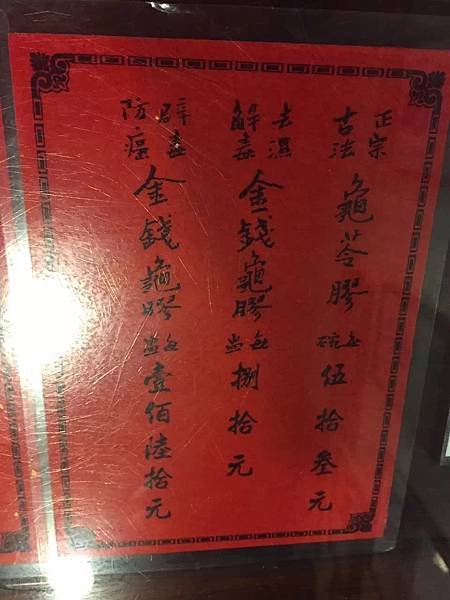 正宗古法龜苓膠每碗伍拾叁元
去濕解毒金錢龜膠每盅捌拾元
辟毒防癌金錢龜膠每盅壹佰陸拾元